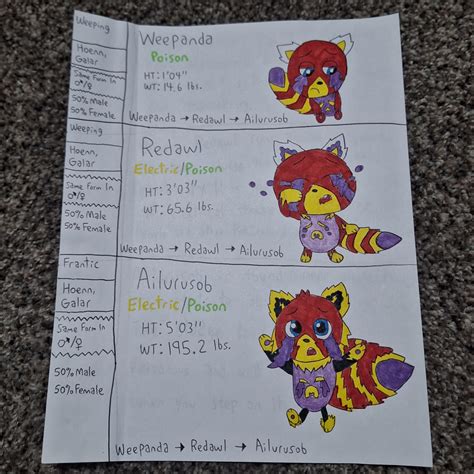 Weeping
Hoenn,
Galar
Same Form In
♂/♀
50% Male
50% Female
Weepanda
Poison
HT: 1'04"
WT: 14.6 lbs.
Weepanda → Redawl → Ailurusob
Weeping
Hoenn,
Galar
Same Form In
♂/♀
50% Male
50% Female
Redawl
Electric/Poison
HT: 3'03"
WT: 65.6 lbs.
Weepanda → Redawl → Ailurusob
Frantic
Hoenn,
Galar
Same Form In
♂/♀
50% Male
50% Female
Ailurusob
Electric/Poison
HT: 5'03"
WT: 195.2 lbs.
Weepanda → Redawl → Ailurusob